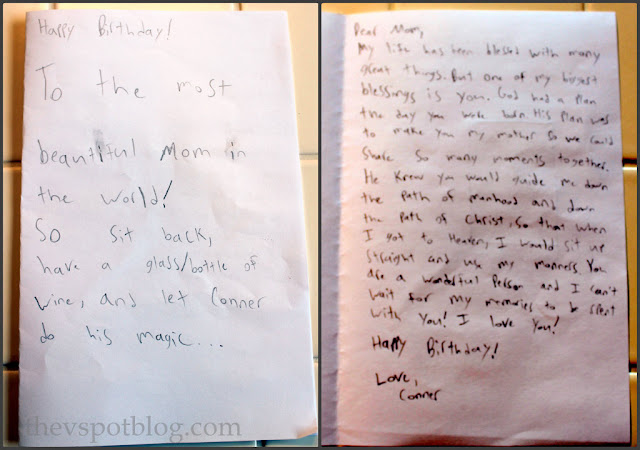 Happy Birthday!
To the most
beautiful Mom in
the world!
So sit back,
have a glass/bottle of
wine, and let Conner
do his magic...
thevspotblog.com
Dear Mom,
My life has been blessed with many
great things. But one of my biggest
blessings is you. God had a plan
the day you were born. His plan was
to make you my mother so we could
share so many moments together.
He knew you would guide me down
the path of manhood and down
the path of Christ, so that when
I got to Heaven, I would sit up
straight and use my manners. You
are a wonderful person and I can't
wait for my memories to be spent
with you! I love you!
Happy Birthday!
Love,
Conner